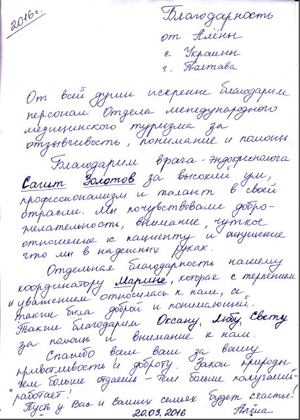 2016г.
Благодарность
от Алёны
с Украины
г. Полтава
От всей души искренне благодарим
персонал Отдела международного
медицинского туризма за
отзывчивость, понимание и помощь
Благодарим врача-эндокринолога
Салит Золотов за высокий ум,
профессионализм и талант в своей
отрасли. Мы почувствовали добро-
желательность, внимание, чуткое
отношение к пациенту и ощущение
что мы в надежных руках.
Отдельная благодарность нашему
координатору Марине, которая с терпением
и уважением относилась к нам, а
также была доброй и понимающей.
Также благодарим Оксану, Любу, Свету
за помощь и внимание к нам.
Спасибо всем вам за вашу
приветливость и доброту. Закон природы
чем больше отдаешь - тем больше получаешь-
работает!
Пусть у Вас и Ваших семьях будет счастье!
20.03.2016 Алёна